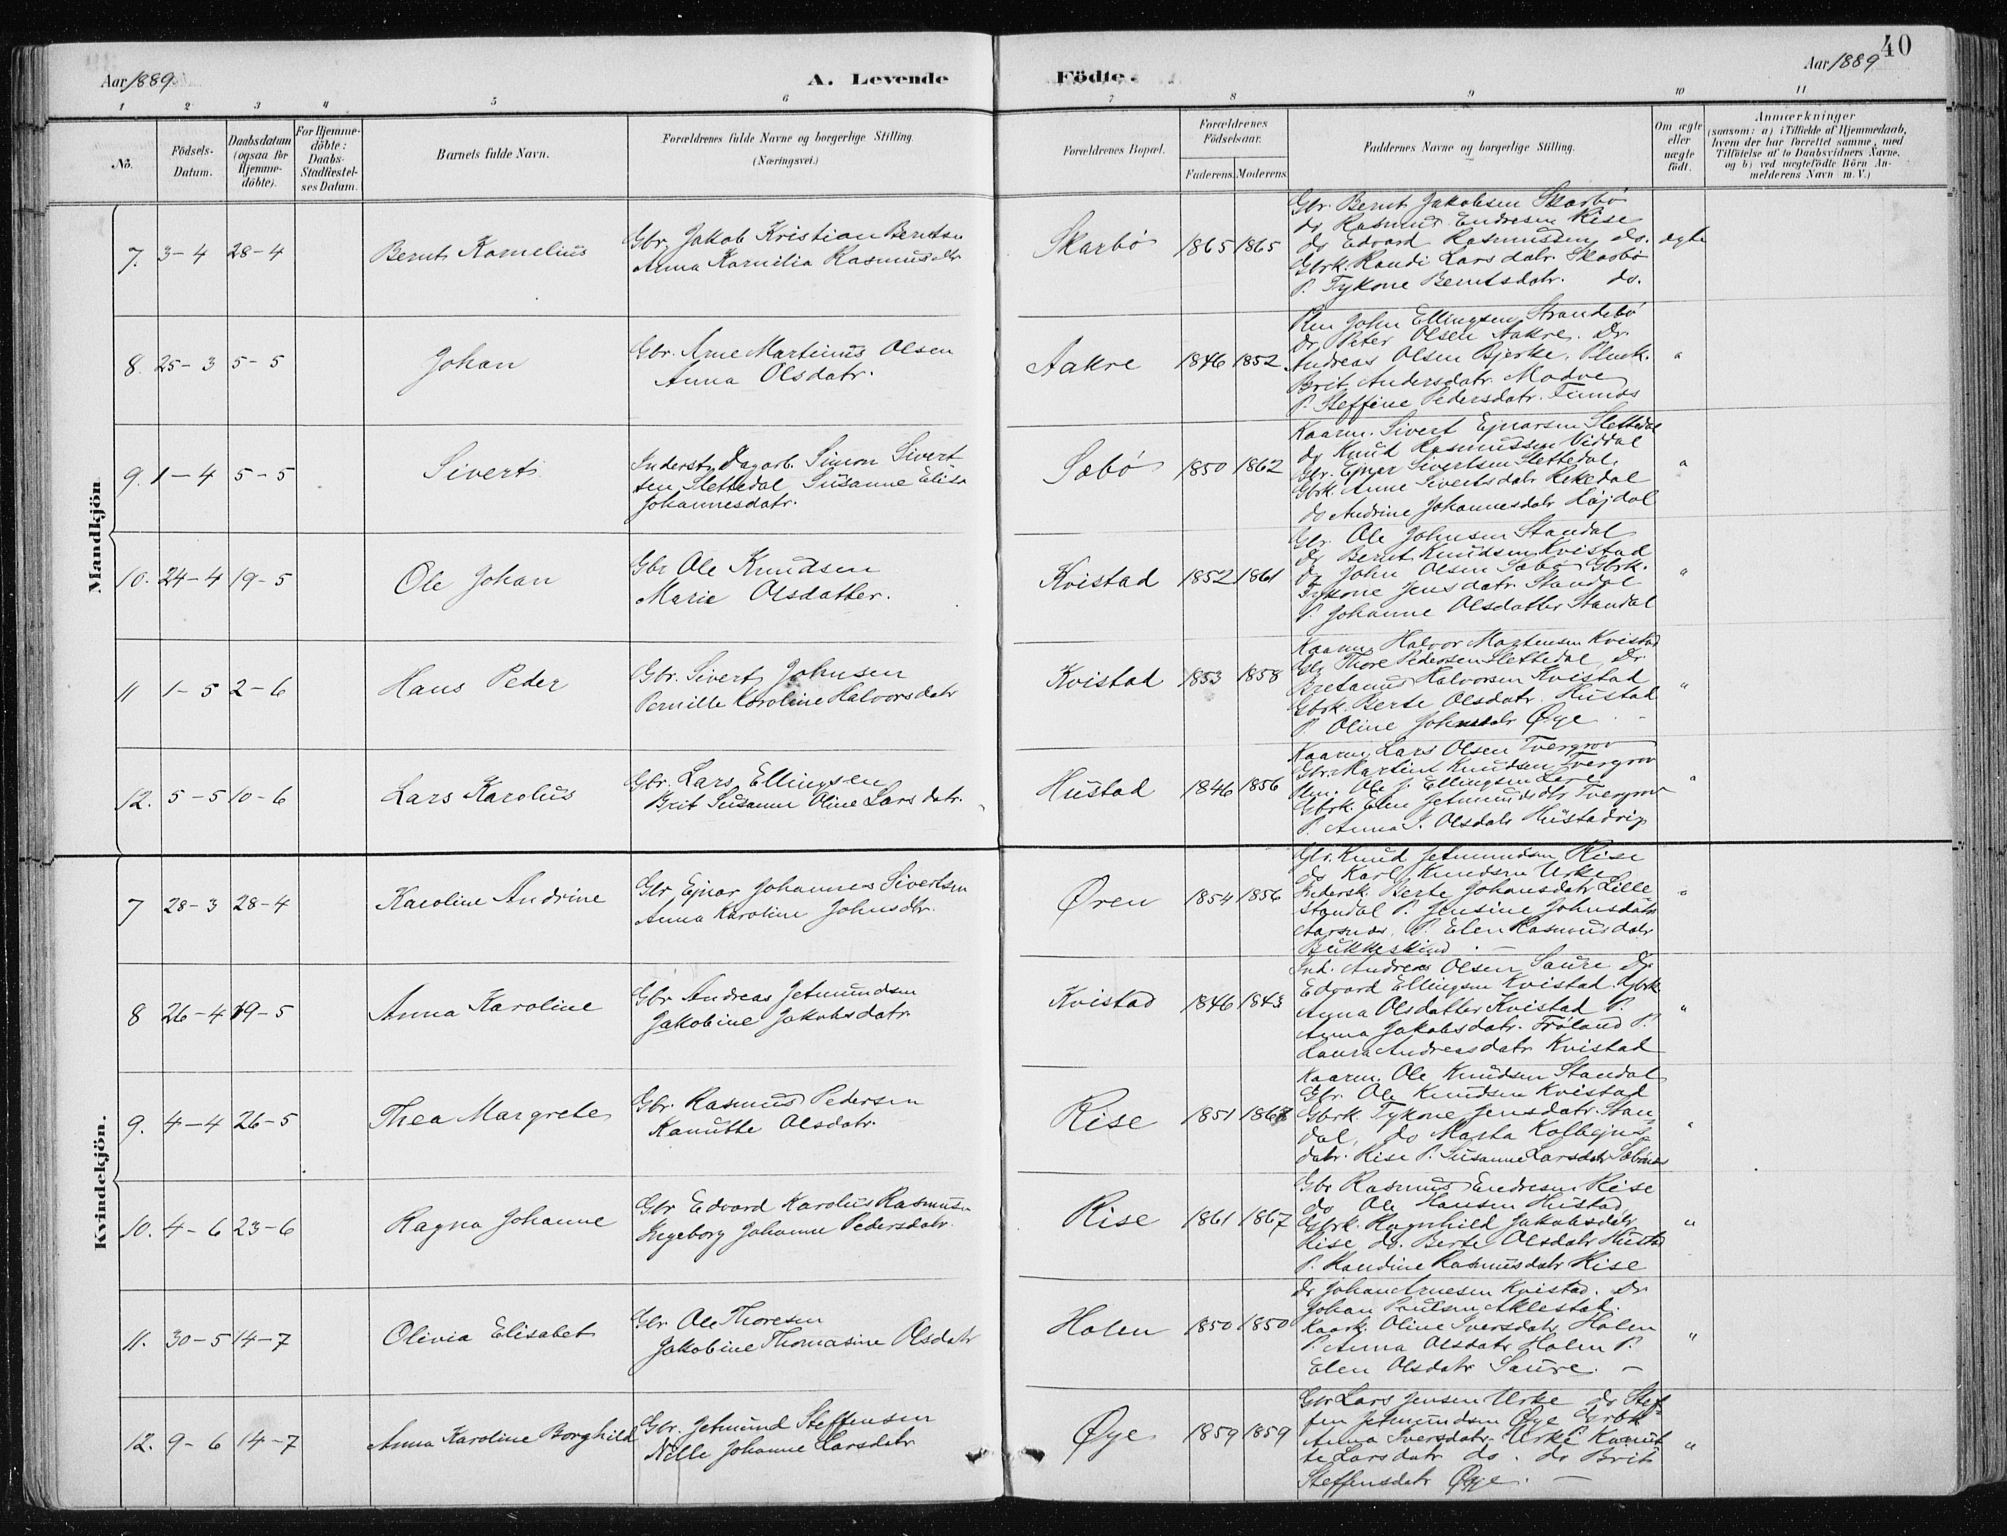 40
Aar 1889
A. Levende
Födte.
Aar 1889
1 2 3 4 5 6 7 8 9 10 11
No.
Födsels-Datum.
Daabsdatum (ogsaa for Hjemme-döbte).
For Hjemme-döbte: Daabs-Stadfæstel-ses Datum.
Barnets fulde Navn.
Forældrenes fulde Navne og borgerlige Stilling. (Næringsvei.)
Forældrenes Bopæl.
Forældrenes Födselsaar.
Faderens. Moderens.
Faddernes Navne og borgerlige Stilling.
Om ægte eller uægte födt.
Anmærkninger
(saasom: a) i Tilfælde af Hjemmedaab,
hvem der har forrettet samme, med
Tilföielse af to Daabsvidners Navne,
og b) ved uægtefödte Börn An-
melderens Navn m. V.)
Mandkjön
7. 3-4 28-4 Bernt Kornelius
Gbr. Jakob Kristian Berntsen
Anna Kornilia Rasmusdtr
Skarbø 1865 1865
Gbr. Bernt Jakobsen Skarbø
do Rasmus Endresen Rise
do Edvard Rasmussen do.
Gbrk. Randi Larsdatr. Skarbø
P. Tykone Berntsdatr. do.
ægte
8. 25-3 5-5 Johan
Gbr. Arne Martinus Olsen
Anna Olsdatr.
Aakre 1846 1852
John Ellingsen Strandebø
Dr. Peter Olsen Aakre. Dr.
Andreas Olsen Bjerke.
Brit Andersdatr. Modve
P. Steffine Pedersdatr. Finnes
"
9. 1-4 5-5 Sivert
Inderst, Dagarb. Simon Sivert
sen Slettedal Susanne Elise
Johannesdatr.
Sæbø 1850 1862
Kaarm. Sivert Ejnarsen Slettedal
do Knud Rasmussen Viddal
Gbr. Ejnar Sivertsen Slettedal.
Gbrk. Anne Sivertsdatr Rekedal
do Andrine Johannesdatr Højdal
"
10. 24-4 19-5 Ole Johan
Gbr Ole Knudsen
Marie Olsdatter.
Kvistad 1852 1861
Gbr. Ole Johnsen Standal
do Bernt Knudsen Kvistad
do John Olsen Sæbø Gbrk.
Tykone Jensdatr. Standal
P. Johanne Olsdatter Standal
"
11 1-5 2-6 Hans Peder
Gbr. Sivert Johnsen
Pernille Karoline Halvorsdatr
Kvistad 1853 1858
Kaarm. Halvor Mortensen Kvistad
Gbr Thore Pedersen Slettedal, Dr.
Bretanus Halvorsen Kvistad
Gbrk. Berte Olsdatr. Hustad
P. Oline Johnsdatr Øye
"
12. 5-5 10-6 Lars Karolus
Gbr. Lars Ellingsen
Brit Susanne Oline Larsdatr.
Hustad 1846 1856
Kaarm. Lars Olsen Tvergrov
Gbr. Martin Knudsen Tvergrov
Ole J. Ellingsen
Gbrk. Elen Jetmundsdtr Tvergrov
P. Anna J. Olsdatr Hustadvig
"
Kvindekjön.
7 28-3 28-4 Karoline Andrine
Gbr Ejnar Johannes Sivertsen
Anna Karoline Johnsdtr.
Øren 1854 1856
Gbr. Knud Jetmundsen Rise
do Karl Knudsen Urke
Indersk. Berte Johansdatr Lille
standal P. Jensine Johnsdatr
Aarsnes. P. Elen Rasmusdatr
Bukkeskind
"
8 26-4 19-5 Anna Karoline
Gbr Andreas Jetmundsen
Jakobine Jakobsdatr
Kvistad 1846 1843
Ind. Andreas Olsen Saure Dr
Edvard Ellingsen Kvistad Gbrk
Anna Olsdatter Kvistad P.
Anna Jakobsdatr. Frøland P.
Laura Andreasdatr Kvistad
"
9. 4-4 26-5 Thea Margrete
Gbr. Rasmus Pedersen
Kanutte Olsdatr.
Rise 1851 1868
Kaarm. Ole Knudsen Standal
Gbr. Ole Knudsen Kvistad
Gbrk Tykone Jensdatr. Stan-
dal, do Marta Kolbejns-
datr. Rise P. Susanne Larsdatr Sæbønes
"
10. 4-6 23-6 Ragna Johanne
Gbr Edvard Karolus Rasmusn
Ingeborg Johanne Pedersdatr.
Rise 1861 1867
Gbr Rasmus Endresen Rise
do Ole Hansen Hustad
Gbrk. Ragnhild Jakobsdatr
Rise do. Berte Olsdatr Hustad
P. Randine Rasmusdatr Rise
"
11. 30-5 14-7 Olivia Elisabet
Gbr Ole Thoresen
Jakobine Thomasine Olsdatr
Holen 1850 1850
Dr Johan Arnesen Kvistad. Dr
Johan Poulsen Aklestad.
Kaark. Oline Iversdatr Holen
P. Anna Olsdatr Holen P.
Elen Olsdatr Saure. -
"
12. 9-6 14-7 Anna Karoline Borghild
Gbr. Jetmund Steffensen
Nille Johanne Larsdatr
Øye 1859 1859
Gbr Lars Jensen Urke do Stef-
fen Jetmundsen Øye Grbk
Anna Iversdatr. Urke P. Kanut
te Larsdatr do. do Brit
Steffensdatr Øye. -
"